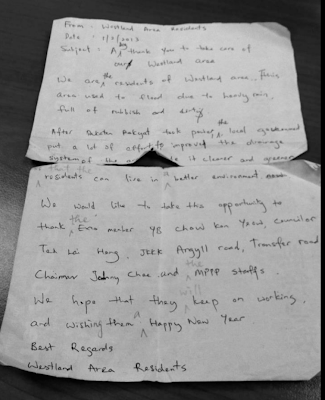 From : Westland Area Residents
Date : 1/2/2013
Subject : A big thank you to take care of
our Westland area
We are the residents of Westland area. This
area used to flood due to heavy rain,
full of rubbish and dirty
After Pakatan Rakyat took power, the local government
put a lot of efforts to improve the drainage
system of the it cleaner and greener
that the residents can live in a better environment
We would like to take the opportunity to
thank the Exco member YB Chow Kon Yeow, Councilor
Tah Loi Heng, JKKK Argyll road, Transfer road
Chairman Johnny Chee and the MPPP staffs.
We hope that they will keep on working,
and wishing them a Happy New Year
Best Regards
Westland Area Residents